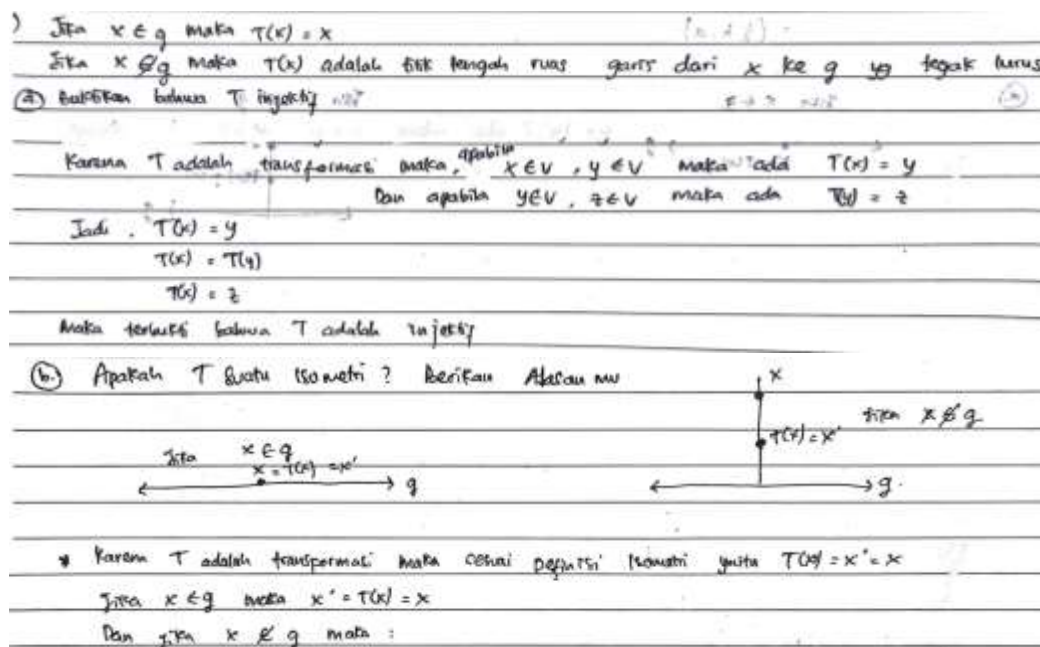 ) Jika x ∈ g maka T(x) = x
Jika x ∉ g maka T(x) adalah titik tengah ruas garis dari x ke g yg tegak lurus
a. Buktikan bahwa T injektif
Karena T adalah transformasi maka, apabila x ∈ V , y ∈ V maka ada T(x) = y
Dan apabila y ∈ V , z ∈ V maka ada T(y) = z
Jadi , T(x) = y
T(x) = T(y)
T(x) = z
Maka terbukti bahwa T adalah injektif
b. Apakah T suatu Isometri ? Berikan Alasan mu
x
Jika x ∉ g
T(x) = x'
Jika x ∈ g
x = T(x) = x'
g
g.
* Karena T adalah transpormasi maka sesuai definisi Isometri yaitu T(x) = x' = x
Jika x ∈ g maka x' = T(x) = x
Dan jika x ∉ g maka :